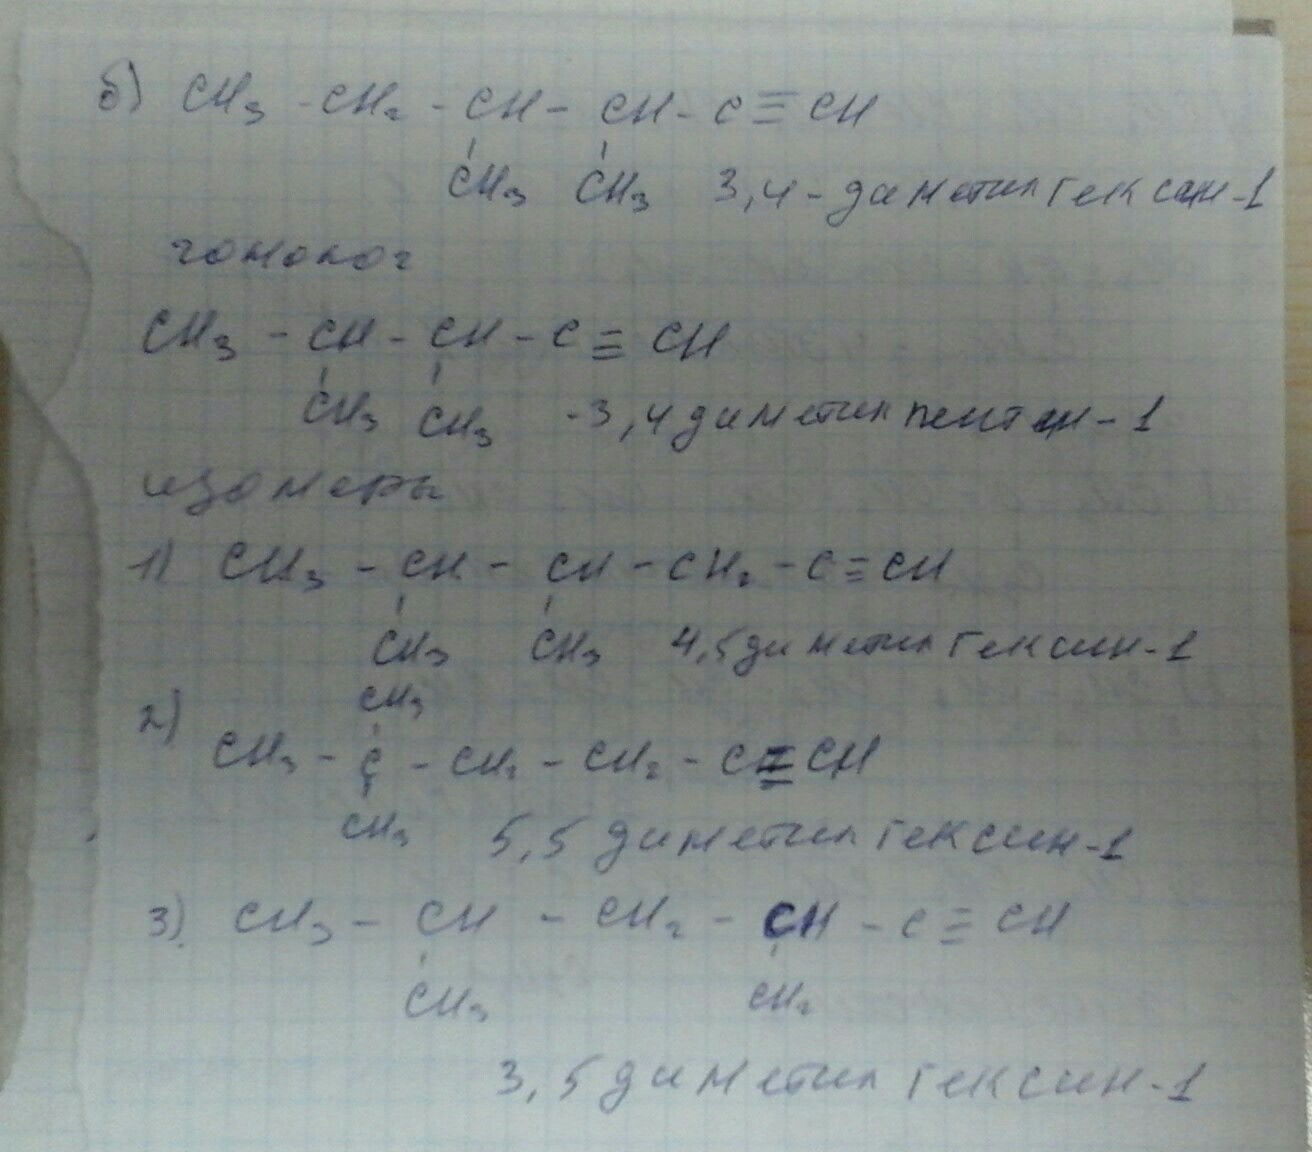 б) CH3 - CH2 - CH - CH - C ≡ CH
CH3 CH3 3,4-диметилгексин-1
гомолог
CH3 - CH - CH - C ≡ CH
CH3 CH3 -3,4 диметилпентин-1
изомеры
1) CH3 - CH - CH - CH2 - C ≡ CH
CH3 CH3 4,5 диметилгексин-1
CH3
2) CH3 - C - CH2 - CH2 - C ≡ CH
CH3 5,5 диметилгексин-1
3) CH3 - CH - CH2 - CH - C ≡ CH
CH3 CH2
3,5 диметилгексин-1